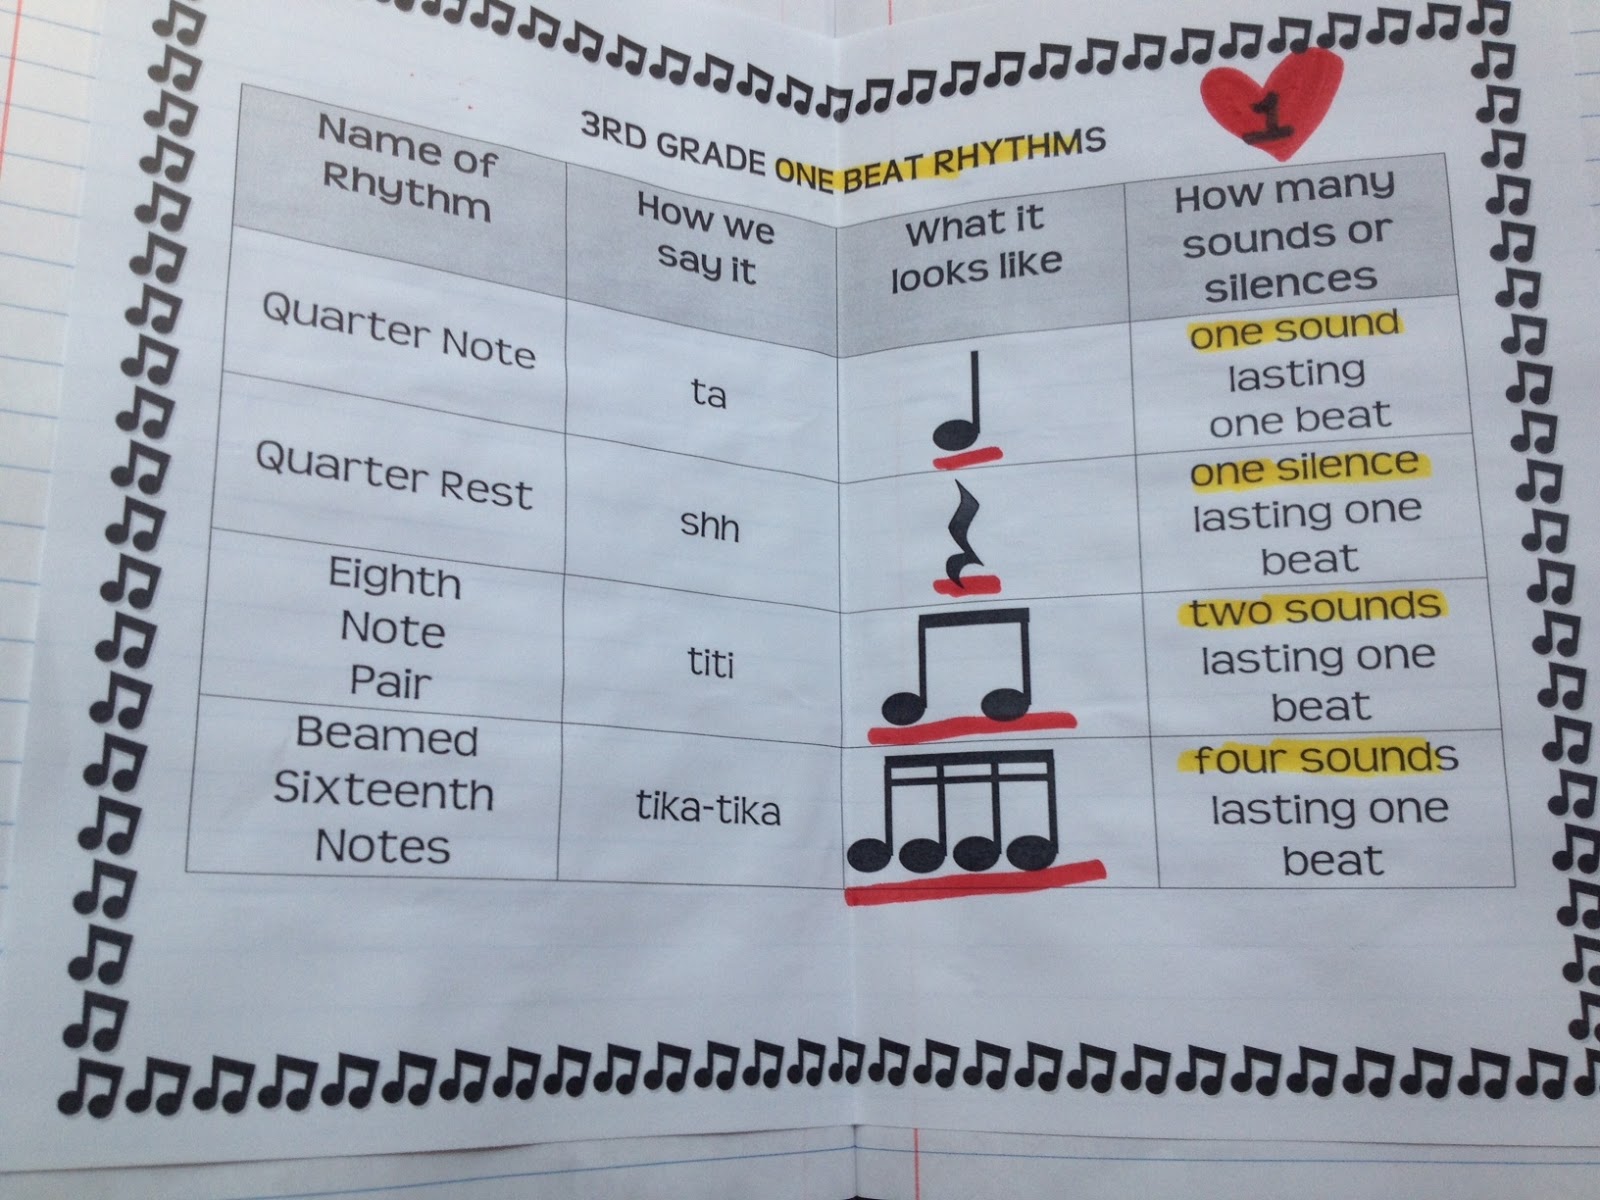 3RD GRADE ONE BEAT RHYTHMS
1
Name of
Rhythm
How we
say it
What it
looks like
How many
sounds or
silences
Quarter Note
ta
one sound
lasting
one beat
Quarter Rest
shh
one silence
lasting one
beat
Eighth
Note
Pair
titi
two sounds
lasting one
beat
Beamed
Sixteenth
Notes
tika-tika
four sounds
lasting one
beat